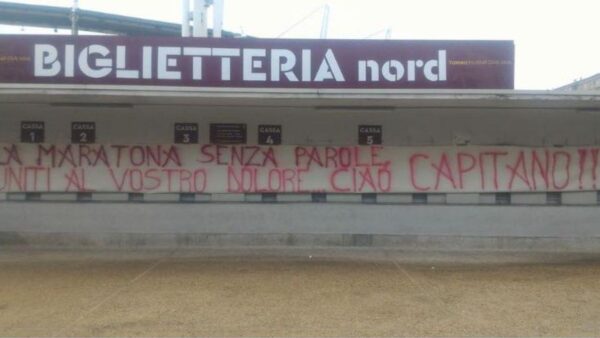 BIGLIETTERIA nord
CASSA 1
CASSA 2
CASSA 3
CASSA 4
CASSA 5
LA MARATONA SENZA PAROLE,
UNITI AL VOSTRO DOLORE... CIAO CAPITANO!!